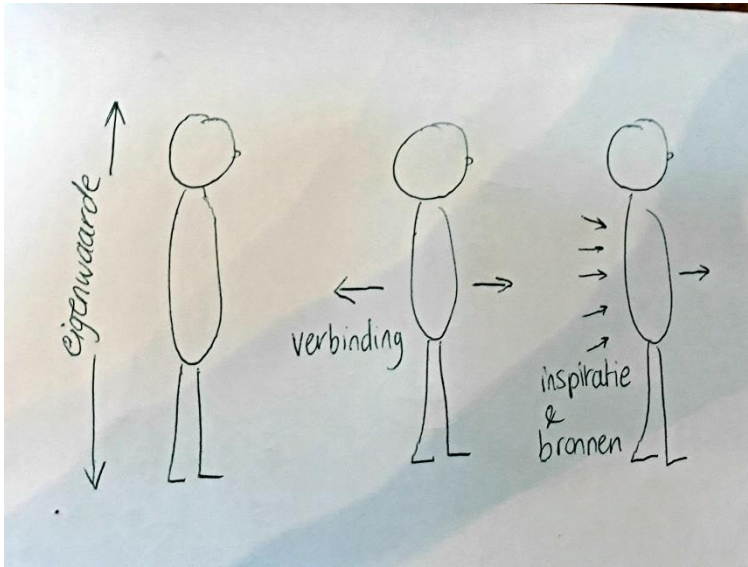 eigenwaarde
verbinding
inspiratie
&
bronnen